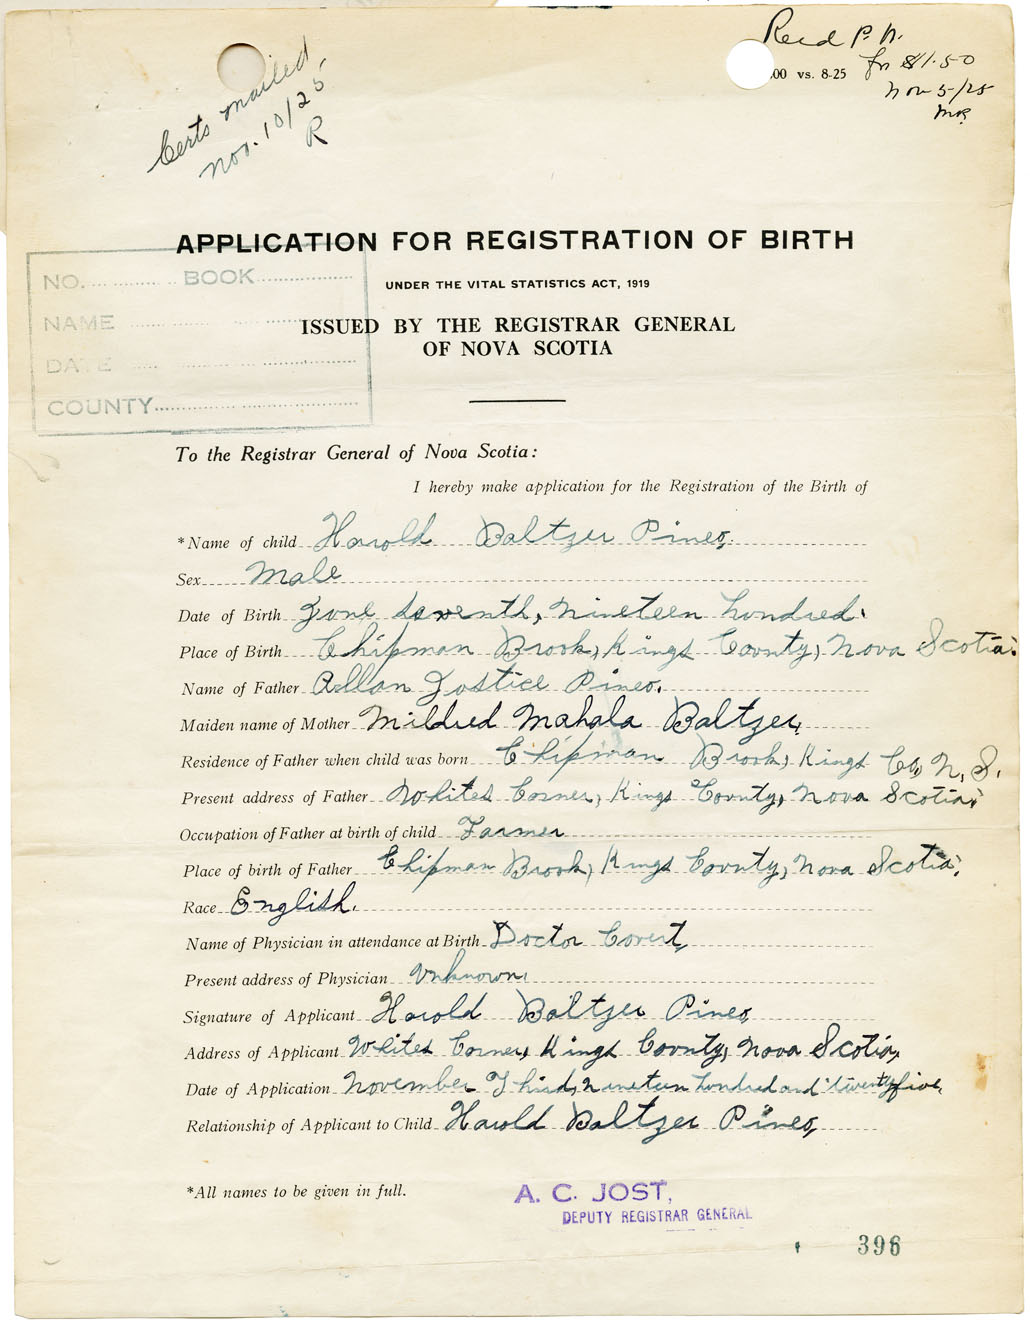 Recd P. N.
for $1.50
Nov 5/25
MR.
00 vs. 8-25
Certs mailed
Nov. 10/25
R
APPLICATION FOR REGISTRATION OF BIRTH
UNDER THE VITAL STATISTICS ACT, 1919
ISSUED BY THE REGISTRAR GENERAL
OF NOVA SCOTIA
NO. BOOK
NAME
DATE
COUNTY
To the Registrar General of Nova Scotia:
I hereby make application for the Registration of the Birth of
*Name of child Harold Baltzer Pineo,
Sex Male
Date of Birth June seventh, nineteen hundred.
Place of Birth Chipman Brook, Kings County, Nova Scotia.
Name of Father Allan Justice Pineo.
Maiden name of Mother Mildred Mahala Baltzer,
Residence of Father when child was born Chipman Brook, Kings Co, N, S.
Present address of Father Whites Corner, Kings County, Nova Scotia,
Occupation of Father at birth of child Farmer
Place of birth of Father Chipman Brook, Kings County, Nova Scotia,
Race English.
Name of Physician in attendance at Birth Doctor Covert,
Present address of Physician Unknown,
Signature of Applicant Harold Baltzer Pineo,
Address of Applicant Whites Corner, Kings County, Nova Scotia,
Date of Application November Third, nineteen hundred and twenty five,
Relationship of Applicant to Child Harold Baltzer Pineo,
*All names to be given in full.
A. C. JOST,
DEPUTY REGISTRAR GENERAL
396